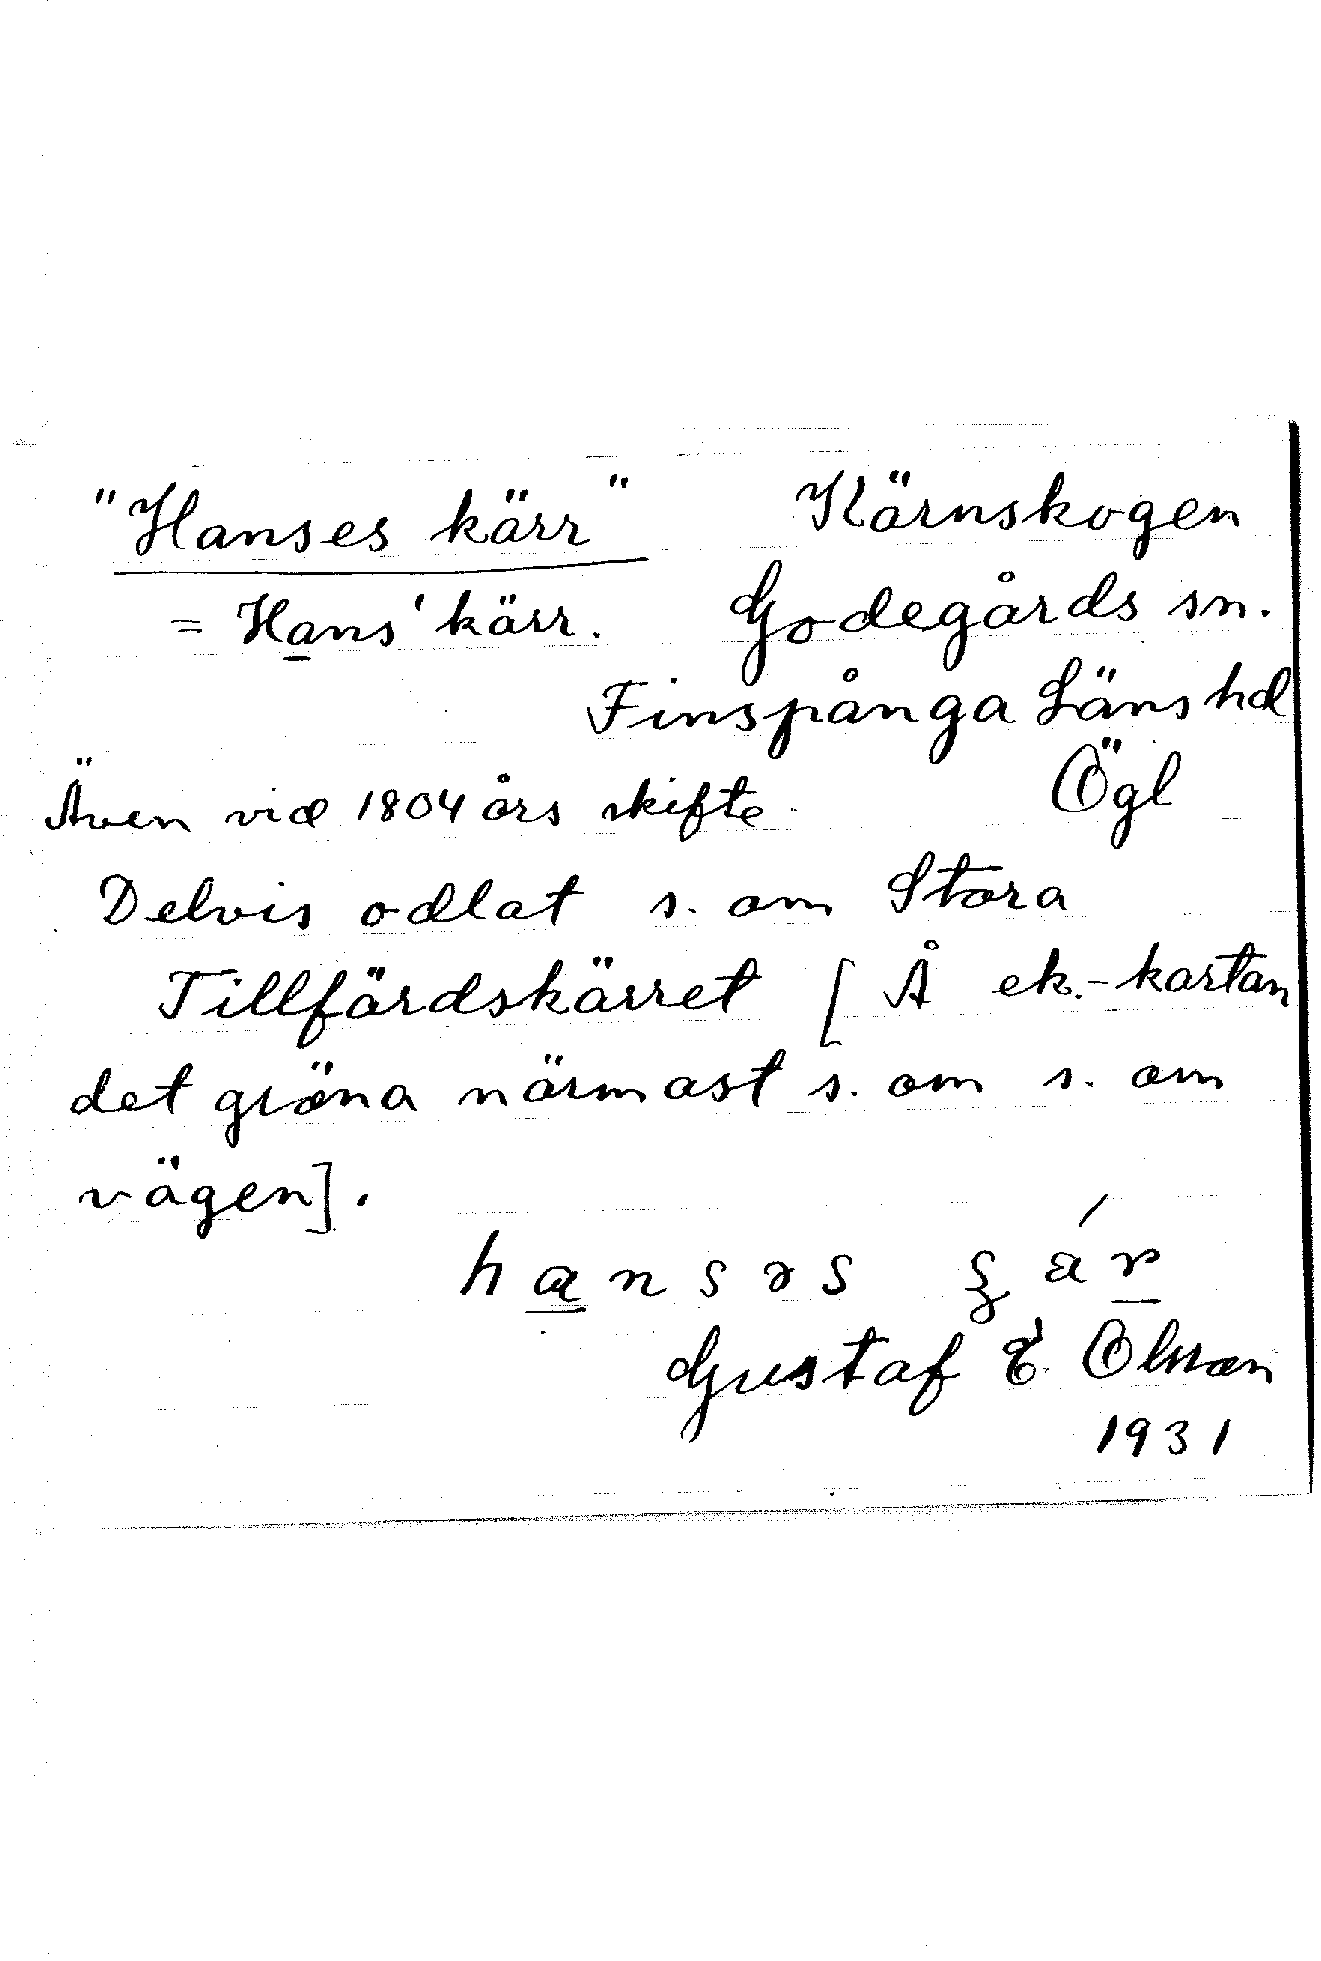 "Hanses kärr" Kärnskogen
= Hans' kärr. Godegårds sn.
Finspånga Läns hd
Även vid 1804 års skifte. Ögl
Delvis odlat s. om Stora
Tillfärdskärret [Å ek.-kartan
det gröna närmast s. om s. om
vägen].
hansəs
Gustaf E. Olsson
1931